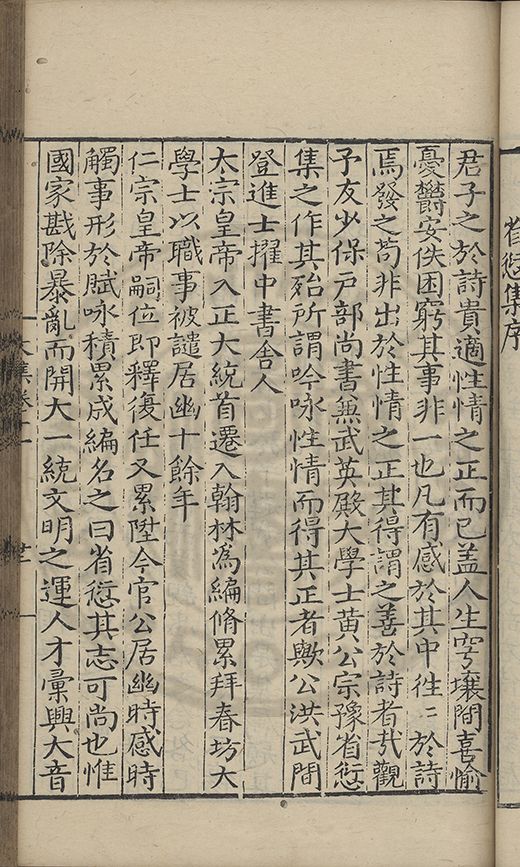 省愆集序
君子之於詩貴適性情之正而已盖人生穹壤間喜愉
憂欝安佚困窮其事非一也凡有感於其中徃〻於詩
焉發之苟非出於性情之正其得謂之善於詩者㢤觀
予友少保戸部尚書兼武英殿大學士黄公宗豫省愆
集之作其殆所謂吟咏性情而得其正者歟公洪武間
登進士擢中書舍人
太宗皇帝入正大統首遷入翰林為編脩累拜春坊大
學士以職事被譴居幽十餘年
仁宗皇帝嗣位即釋復任又累陞今官公居幽時感時
觸事形於賦咏積累成編名之曰省愆其志可尚也惟
國家戡除暴亂而開大一統文明之運人才彙興大音